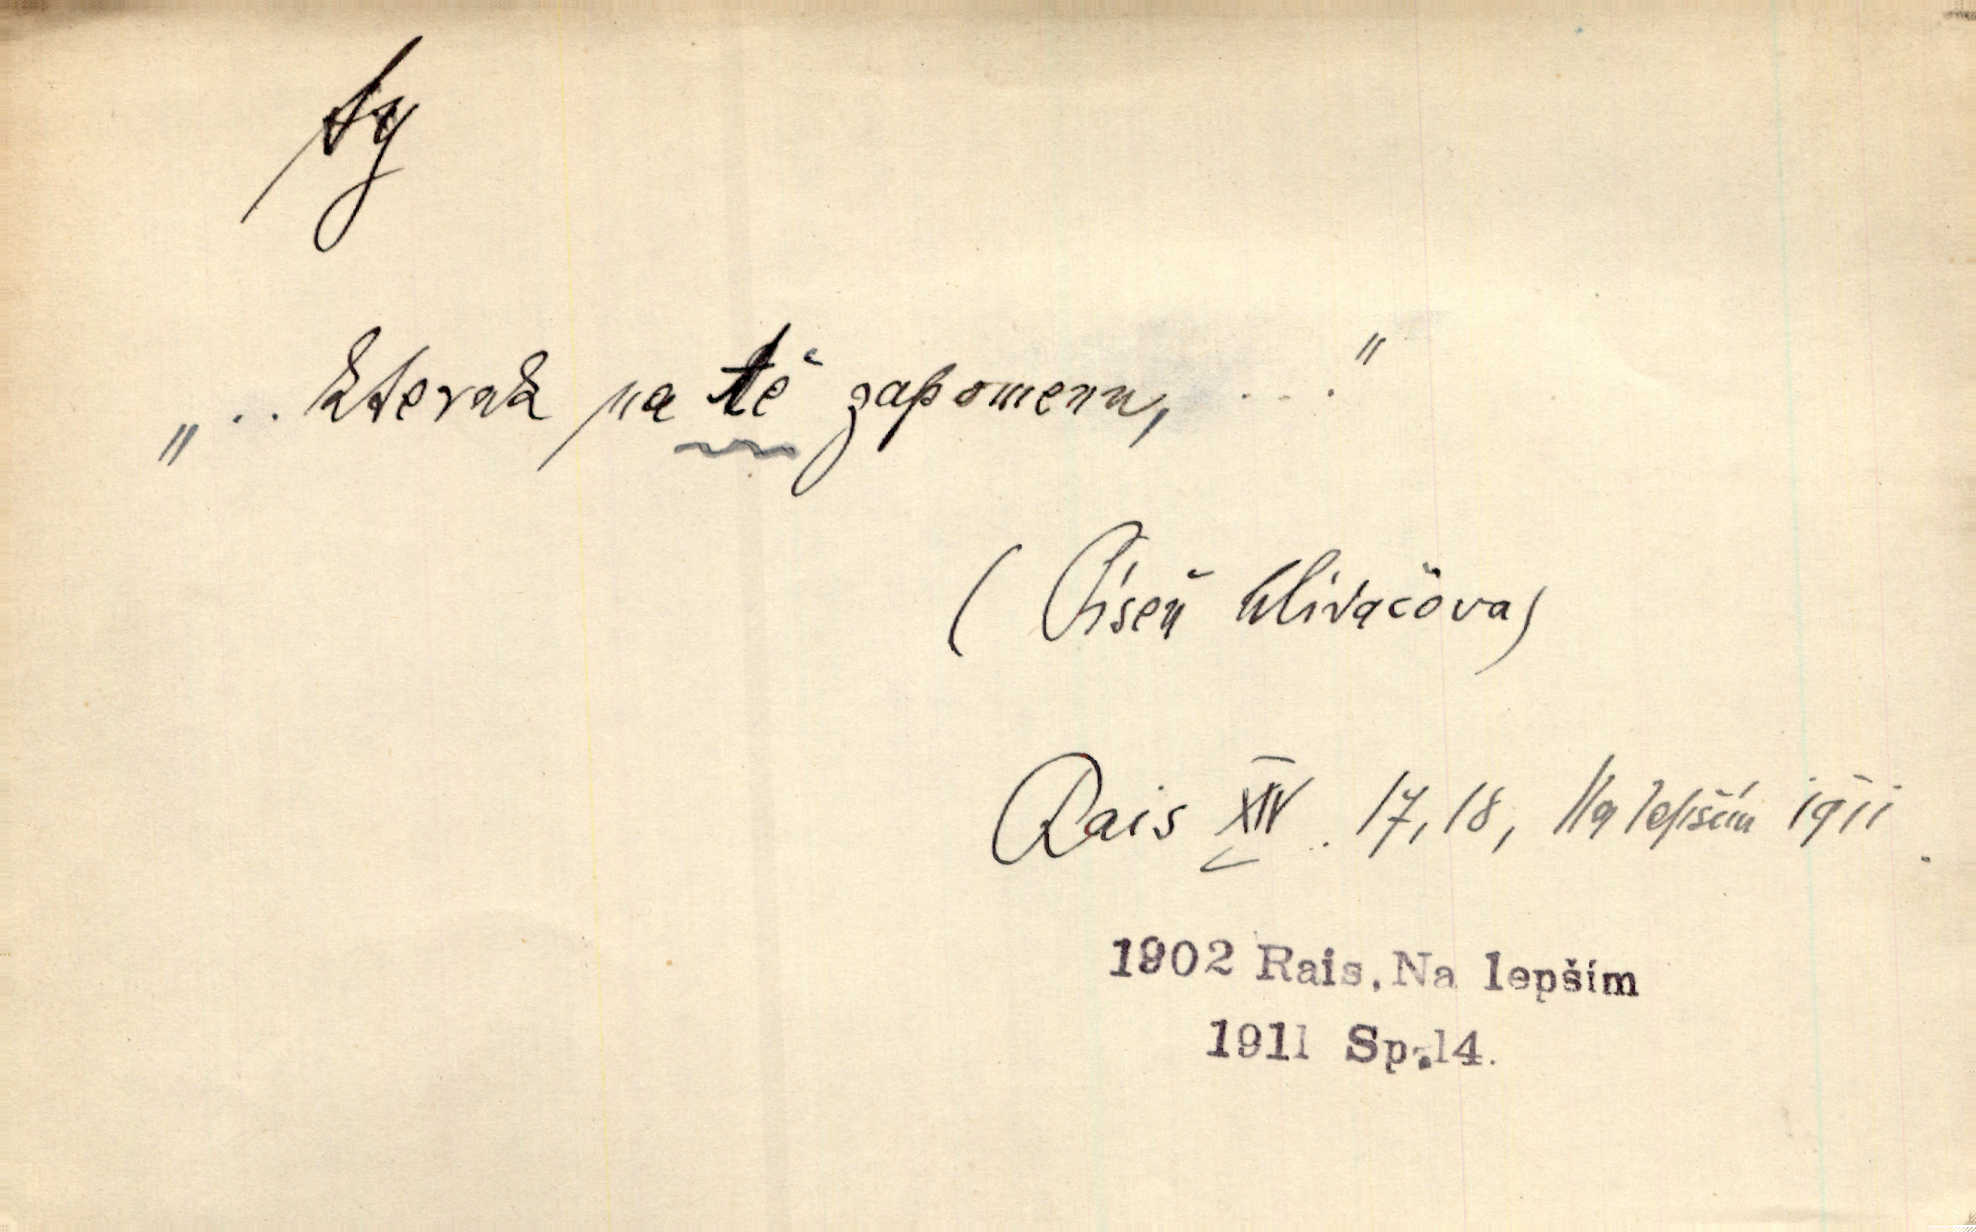 ty
„.. kterak na tě zapomenu, ...."
(Píseň klivačova)
Rais XIV. 17, 18, Na lepším 1911.
1902 Rais, Na lepším
1911 Sp.14.